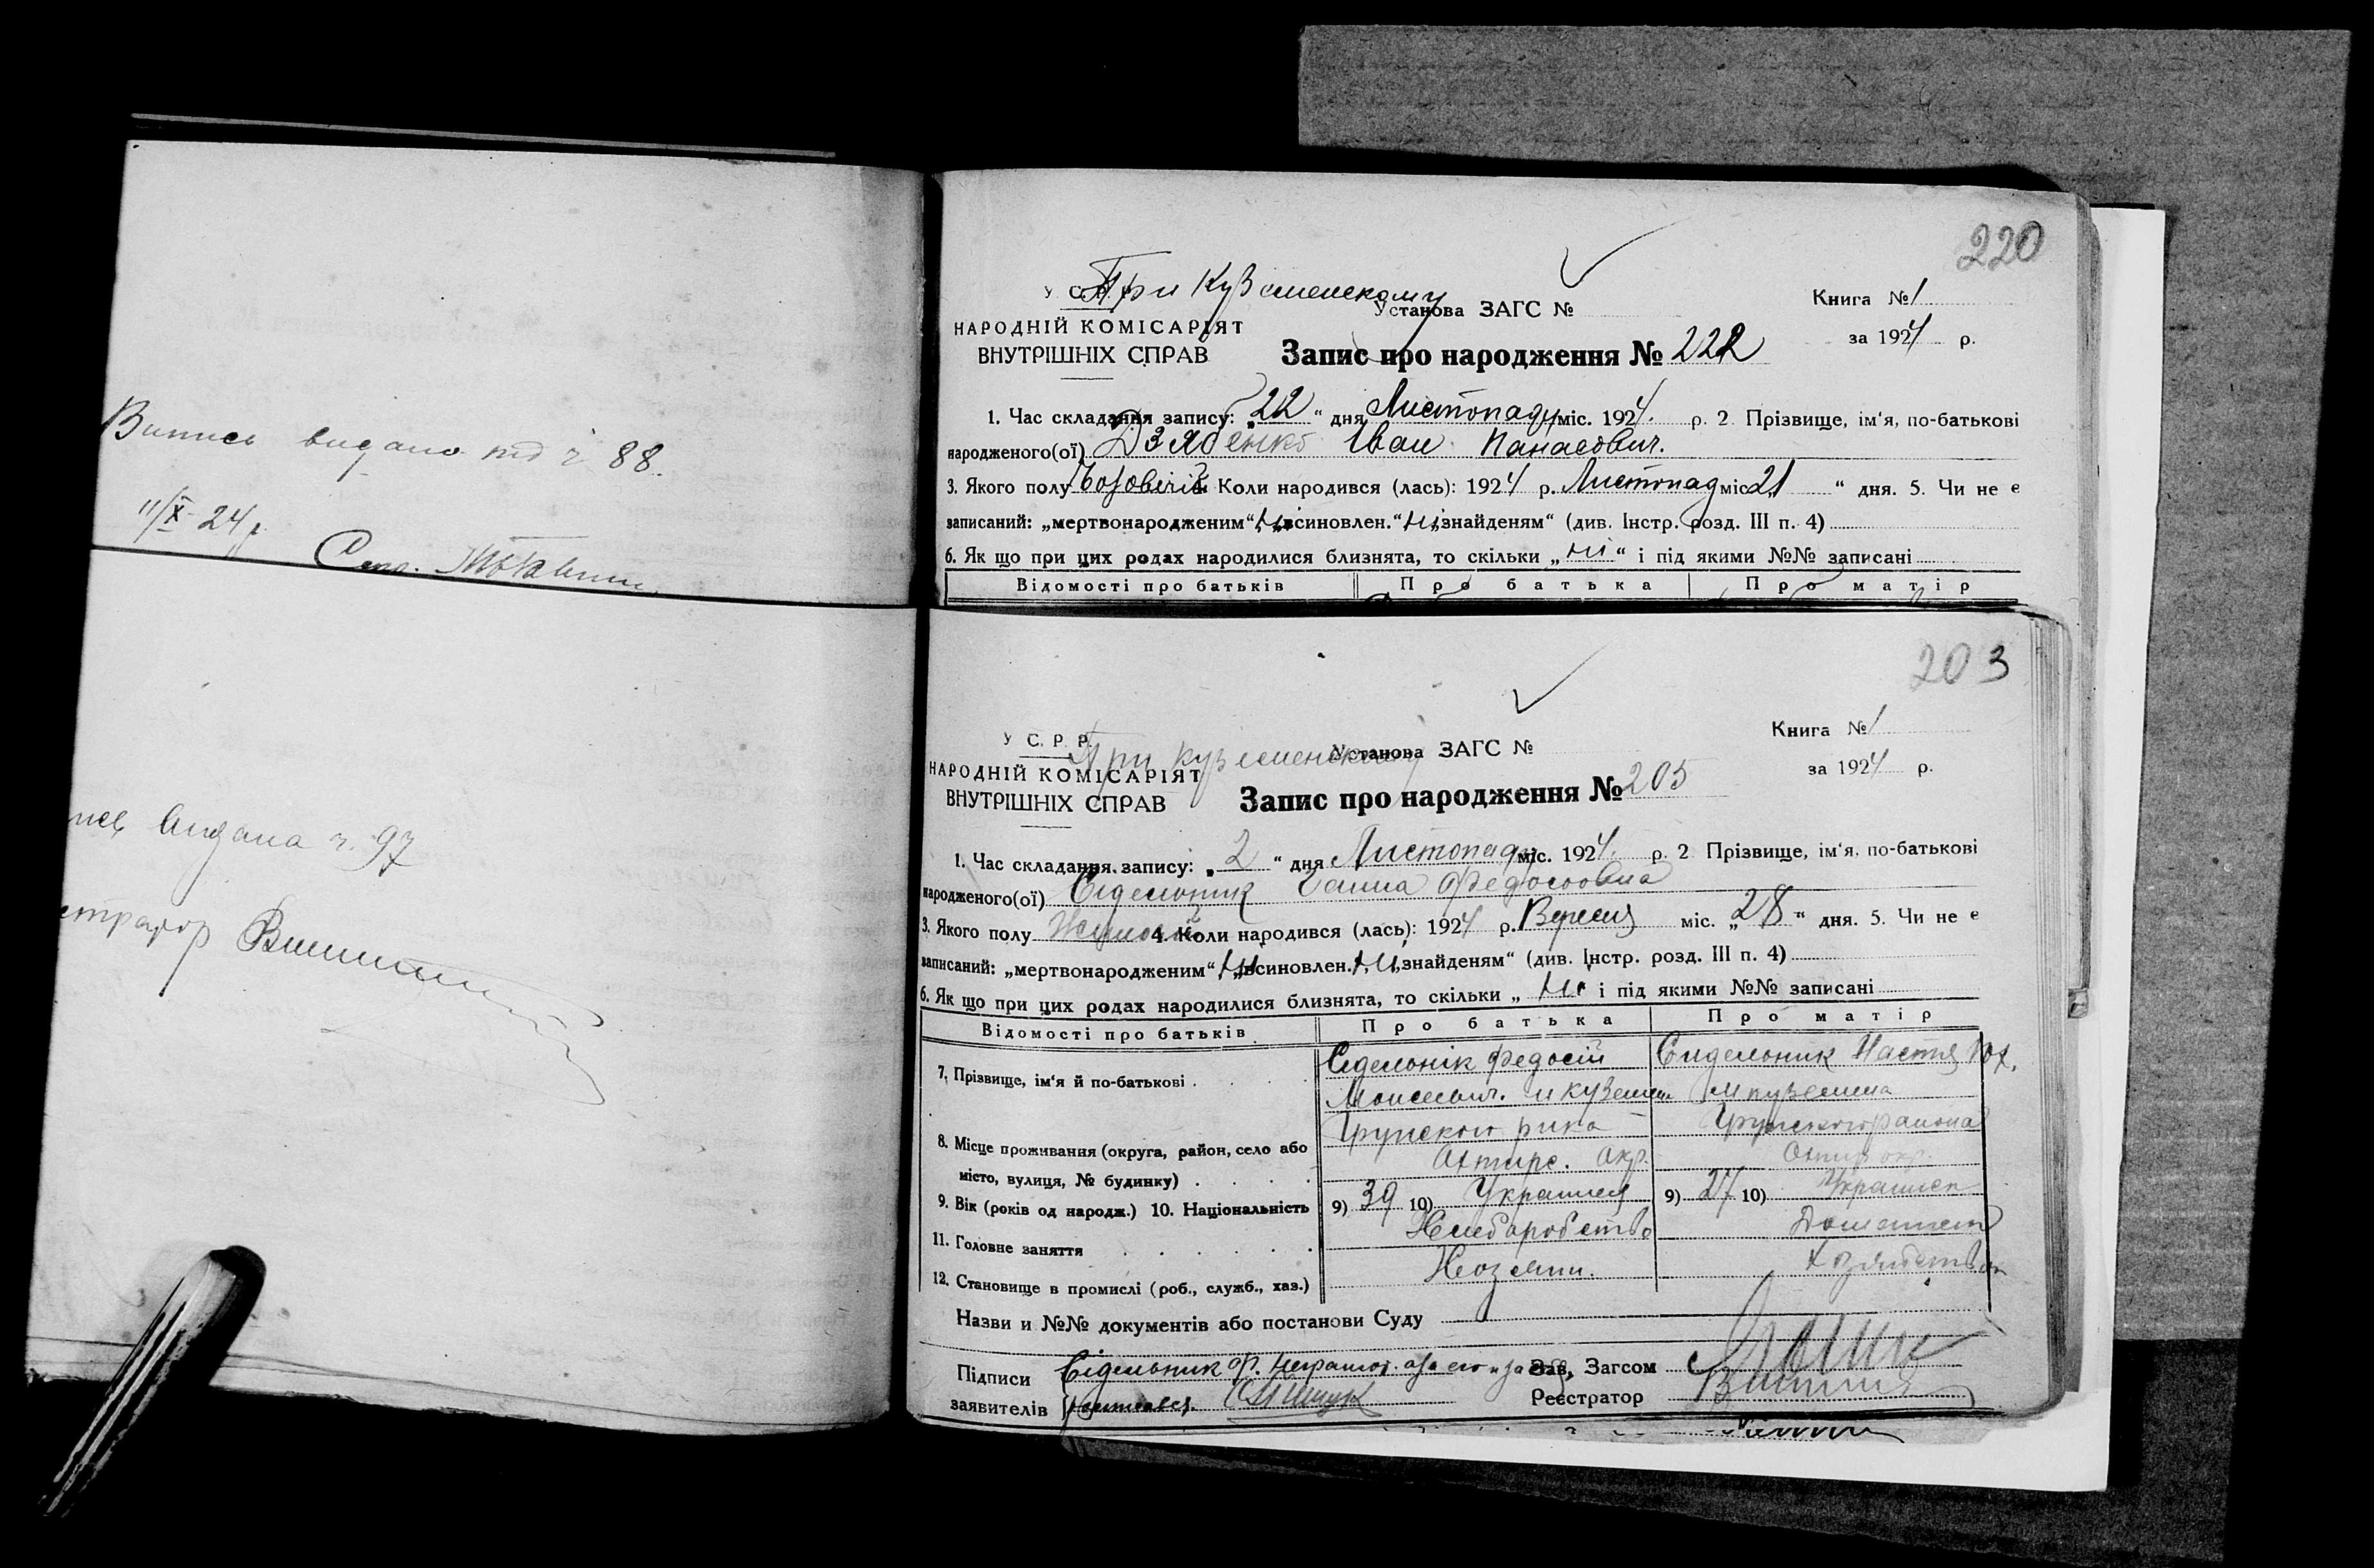 Випись видано під ч 88.
11/X 24 р
Секр.
видана ч. 97
220
При Кузєменському
У С. Р. Р.
Установа ЗАГС №
Книга № 1
НАРОДНІЙ КОМІСАРІЯТ
ВНУТРІШНІХ СПРАВ
за 1924 р.
Запис про народження № 222
1. Час складання запису: „22“ дня Листопаду міс. 1924 р. 2 Прізвище, ім‘я, по-батькові
народженого(ої) Дзябенко Іван Панасович.
3. Якого полу 4. Коли народився (лась): 1924 р. Листопад міс „21“ дня. 5. Чи не є
записаний: „мертвонародженим“ ні „всиновлен.“ ні „знайденям“ (див. Інстр. розд. III п. 4)
6. Як що при цих родах народилися близнята, то скільки „ні“ і під якими №№ записані
Відомості про батьків Про батька Про матір
203
У С. Р. Р.
При Кузєменському
Установа ЗАГС №
Книга № 1
НАРОДНІЙ КОМІСАРІЯТ
ВНУТРІШНІХ СПРАВ
за 1924 р.
Запис про народження № 205
1. Час складання запису: „2“ дня Листопад міс. 1924. р. 2 Прізвище, ім‘я, по-батькові
народженого(ої) Сідельник Ганна Федосовна
3. Якого полу Жіночій 4. Коли народився (лась): 1924 р. Вересня міс. „28“ дня. 5. Чи не є
записаний: „мертвонародженим“ ні „всиновлен. ні „знайденям“ (див. Інстр. розд. III п. 4)
6. Як що при цих родах народилися близнята, то скільки „ні і під якими №№ записані
Відомості про батьків. Про батька Про матір
7. Прізвище, ім‘я й по-батькові . Сідельнік Федосій Сидельник Настя
Моисеевич. м Куземин м Куземина
8. Місце проживання (округа, район, село або Грунского р-на Грунского района
місто, вулиця, № будинку) . Охтирс. окр. Охтир окр.
9. Вік (років од народж.) 10. Національність 9) 39 10) Украинец 9) 27 10) Украинск
11. Головне заняття Хлеборобство Домашнем
12. Становище в промислі (роб., служб., хаз.) Хозяин. хозяйством
Назви и №№ документів або постанови Суду
Підписи Сідельник Ф. неграмот. а за его и за себя Зав, Загсом
заявителів росписався. Реєстратор